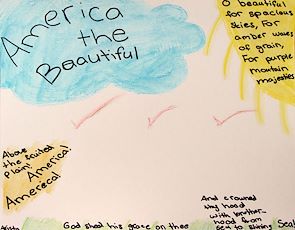 America
the
Beautiful
O beautiful
for spacious
skies, For
amber waves
of grain,
For purple
mountain
majesties
Above
the fruited
Plain!
America!
America!
God shed his grace on thee
And crowned
thy good
with brother-
hood from
sea to shining Sea!